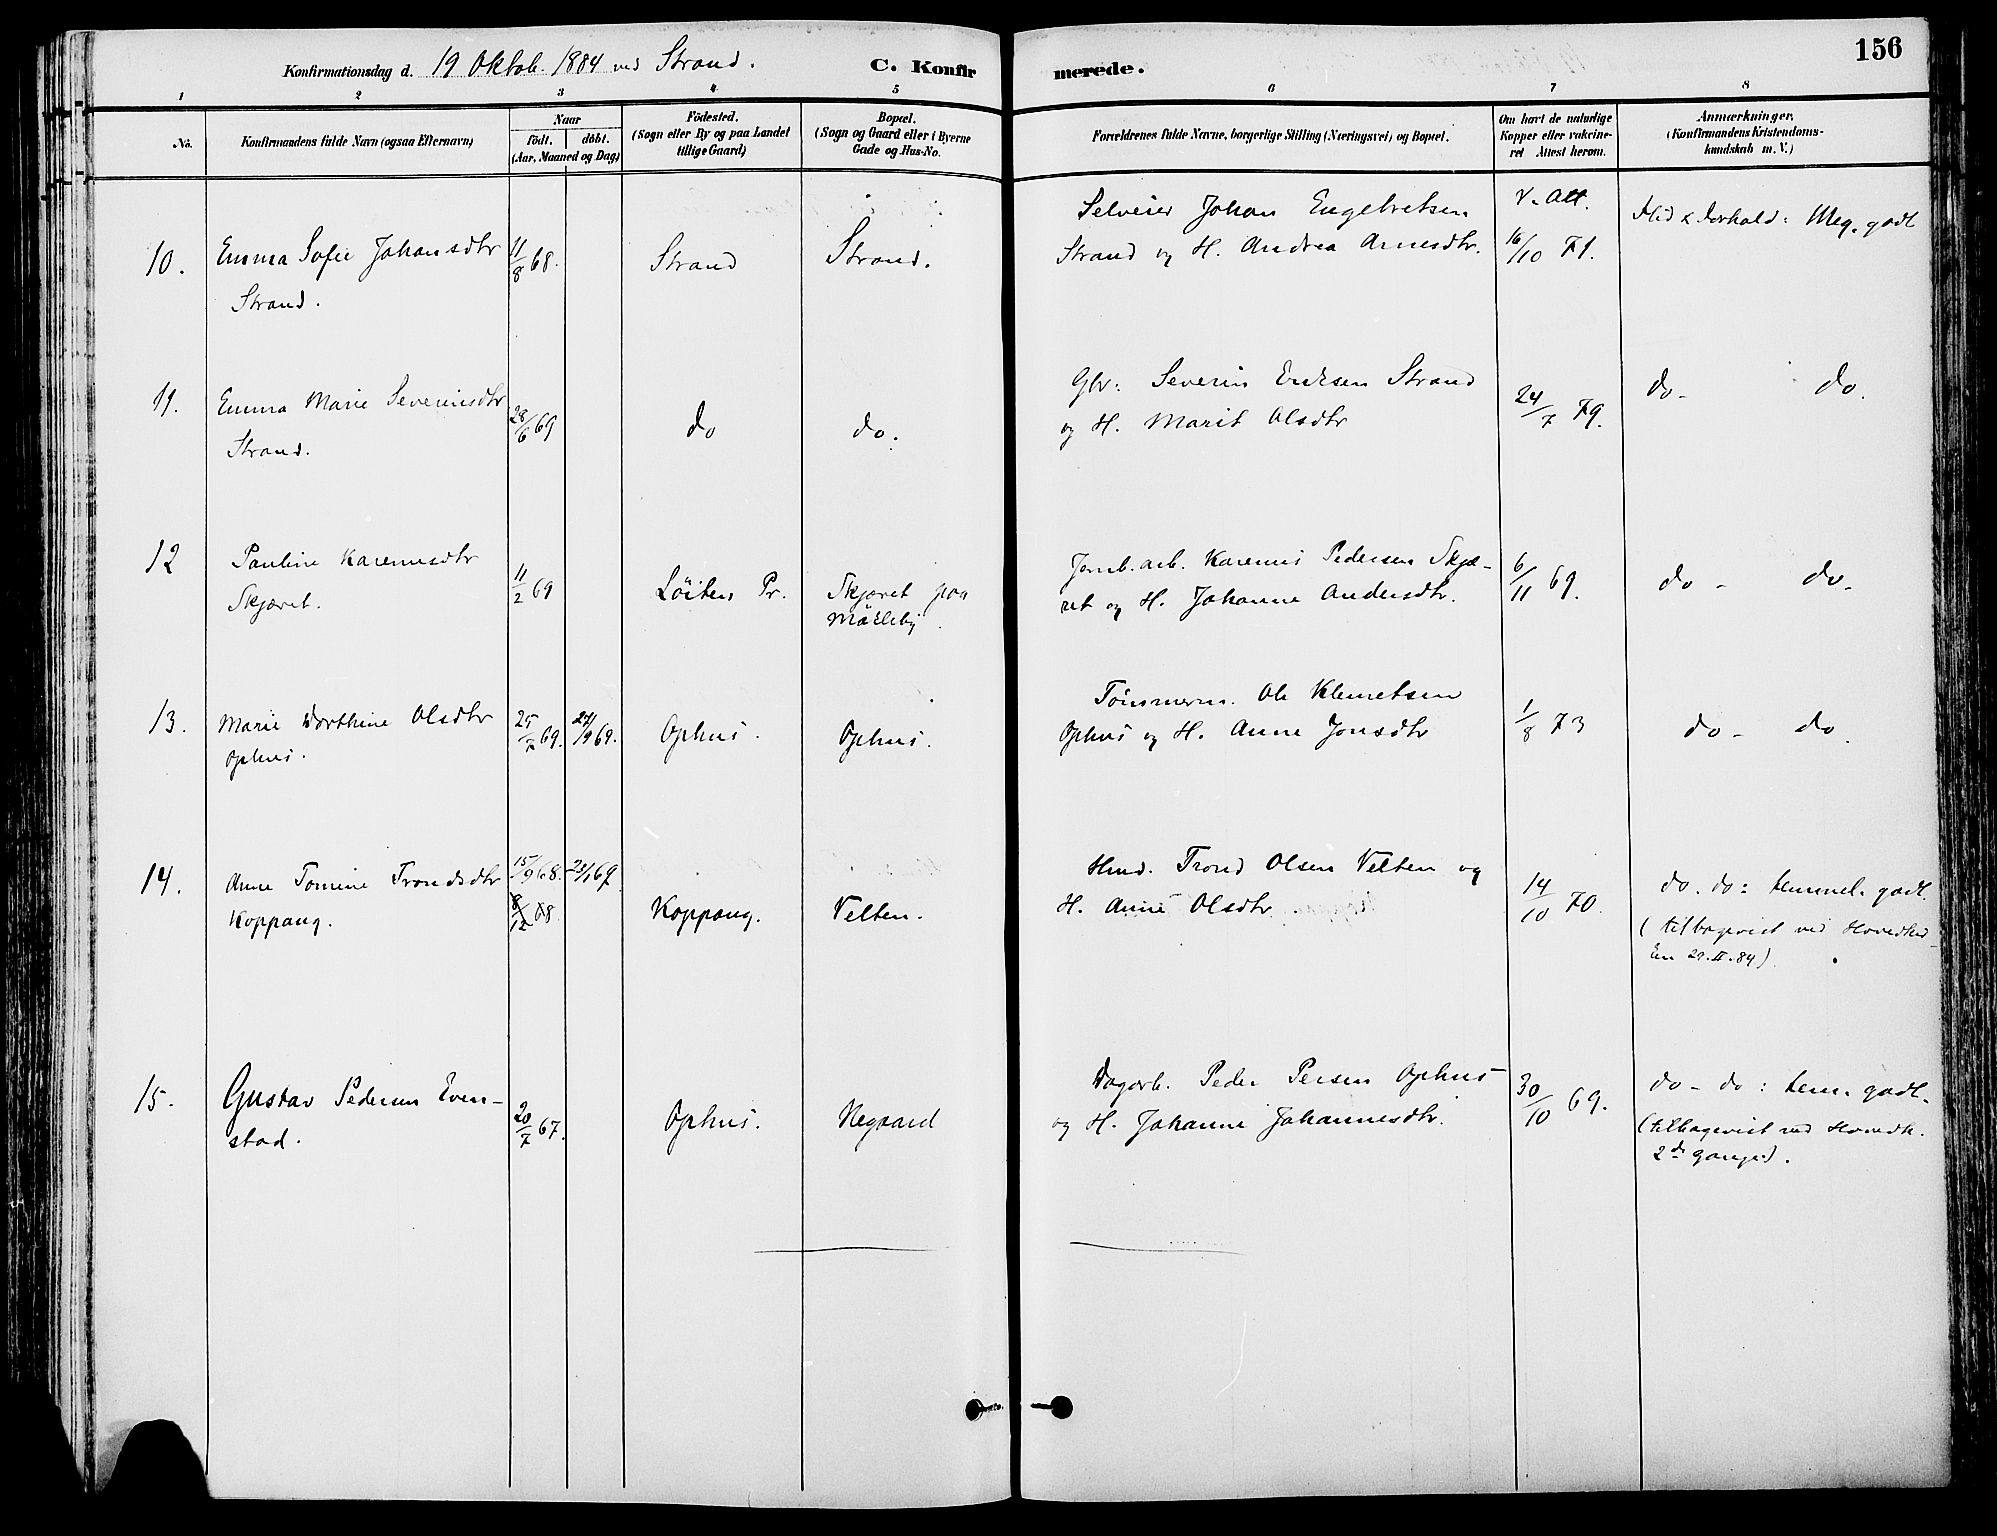 156
Konfirmationsdag d. 19 Oktob. 1884 ved Strand. C. Konfirmerede.
1 2 3 4 5 6 7 8
No. Konfirmandens fulde Navn (ogsaa Efternavn) Naar født. døbt. (Aar, Maaned og Dag) Fødested. (Sogn eller By og paa Landet tillige Gaard) Bopæl. (Sogn og Gaard eller i Byerne Gade og Hus-No. Forældrenes fulde Navne, borgerlige Stilling (Næringsvei) og Bopæl. Om havt de naturlige Kopper eller vakcineret Attest herom. Anmærkninger. (Konfirmandens Kristendomskundskab m. V.)
10. Emma Sofie Johansdtr 11/8 68. Strand Strand. Selveier Johan Engebretsen V. Att. Flid & Forhold: Meg. godt
Strand. Strand og H. Andrea Arnesdtr. 16/10 71.
11. Emma Marie Severinsdtr 28/6 69 do do. Gbr: Severin Eriksen Strand 24/7 79. do - do.
Strand. og H. Marit Olsdtr
12 Pauline Karenusdtr 11/2 69 Løiten Pr. Skjæret paa Jernb. arb. Karenus Pedersen Skjæ- 6/11 69. do - do -
Skjæret. ret og H. Johanne Andersdtr.
13. Marie Dorthine Olsdtr 25/7 69. 24/9 69. Ophus. Ophus. Tømmerm. Ole Klemetsen 1/8 73 do - do.
Ophus. Ophus og H. Anne Jonsdtr
14. Anne Tomine Trondsdtr 15/9 68. Koppang. Velten. Hmd. Trond Olsen Velten og 14/10 70. do. do: temmel. godt.
Koppang. 8/12 68 H. Anne Olsdtr (tilbagevist ved Hovedkir-
en 29.II.84)
15. Gustav Pedersen Even- 20/7 67. Ophus. Negaard Dagarb. Peder Persen Ophus 30/10 69. do - do: tem. godt.
stad. og H. Johanne Johannesdtr. (tilbagevist ved Hovedk.
2de Gange).